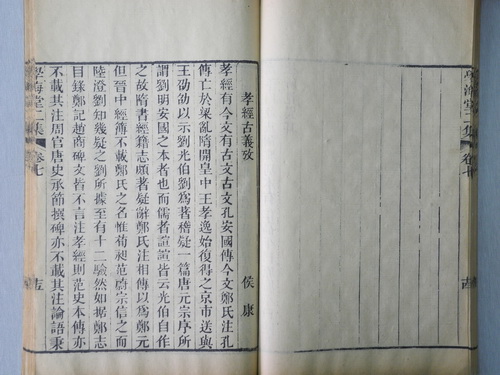 學海堂二集 卷七
孝經古義攷
侯康
孝經有今文有古文古文孔安國傳今文鄭氏注孔
傳亡於梁亂隋開皇中王孝逸始復得之京市送與
王劭劭以示劉光伯劉爲著稽疑一篇唐元宗序所
謂劉明安國之本者也而儒者諠諠皆云光伯自作
之故隋書經籍志頗著疑辭鄭氏注相傳以爲鄭元
但晉中經簿不載鄭氏之名惟荀昶范蔚宗信之而
陸澄劉知幾疑之劉所據至有十二驗然如據鄭志
目錄鄭記趙商碑文皆不言注孝經則范史本傳亦
不載其注周官唐史承節撰碑亦不載其注論語秉
學海堂二集 卷七